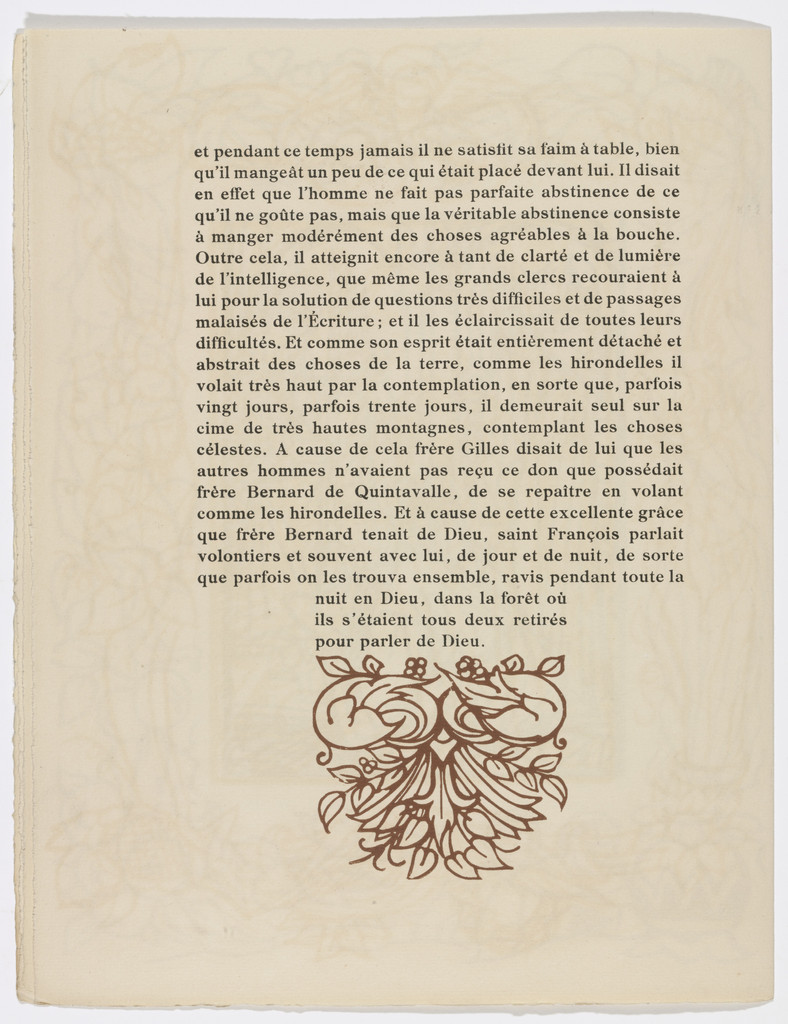 et pendant ce temps jamais il ne satisfit sa faim à table, bien
qu'il mangeât un peu de ce qui était placé devant lui. Il disait
en effet que l'homme ne fait pas parfaite abstinence de ce
qu'il ne goûte pas, mais que la véritable abstinence consiste
à manger modérément des choses agréables à la bouche.
Outre cela, il atteignit encore à tant de clarté et de lumière
de l'intelligence, que même les grands clercs recouraient à
lui pour la solution de questions très difficiles et de passages
malaisés de l'Écriture ; et il les éclaircissait de toutes leurs
difficultés. Et comme son esprit était entièrement détaché et
abstrait des choses de la terre, comme les hirondelles il
volait très haut par la contemplation, en sorte que, parfois
vingt jours, parfois trente jours, il demeurait seul sur la
cime de très hautes montagnes, contemplant les choses
célestes. A cause de cela frère Gilles disait de lui que les
autres hommes n'avaient pas reçu ce don que possédait
frère Bernard de Quintavalle, de se repaître en volant
comme les hirondelles. Et à cause de cette excellente grâce
que frère Bernard tenait de Dieu, saint François parlait
volontiers et souvent avec lui, de jour et de nuit, de sorte
que parfois on les trouva ensemble, ravis pendant toute la
nuit en Dieu, dans la forêt où
ils s'étaient tous deux retirés
pour parler de Dieu.